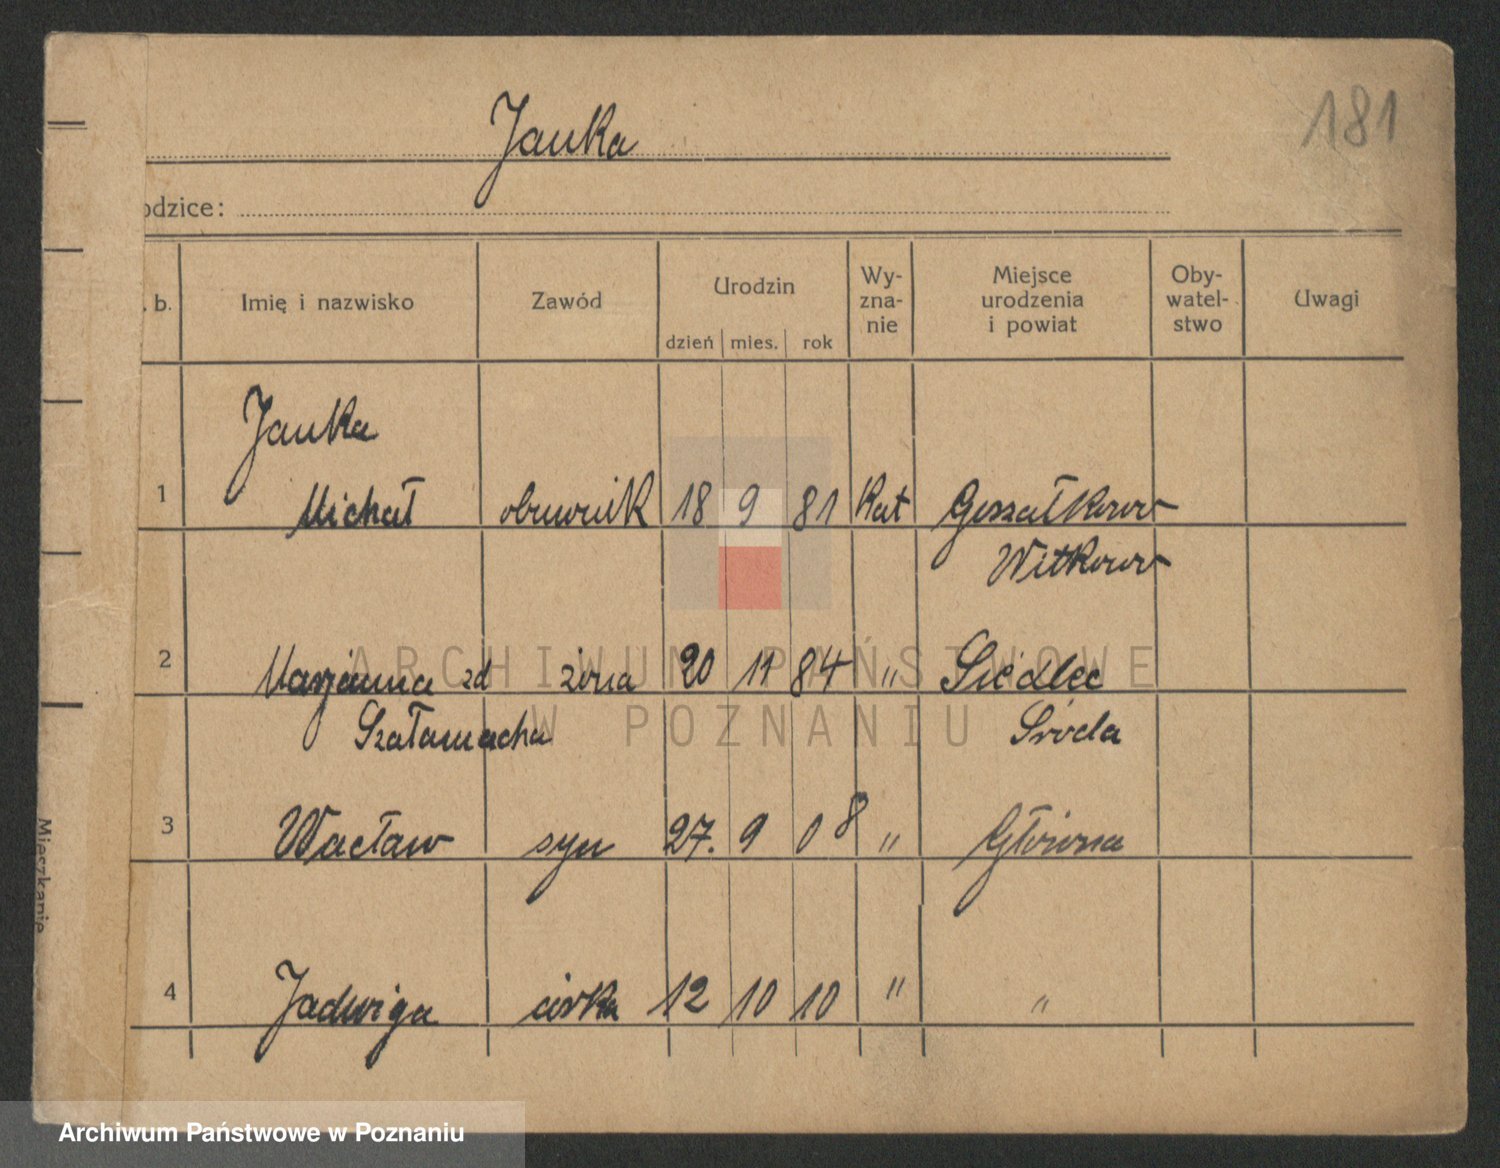 Janka
181
odzice:
. b. Imię i nazwisko Zawód Urodzin dzień mies. rok Wy-zna-nie Miejsce urodzenia i powiat Oby-watel-stwo Uwagi
Janka
1 Michał obuwnik 18 9 81 Kat Goszałkowo
Witkowo
2 Marjanna zd żona 20 11 84 " Siedlec
Szałamacha Środa
3 Wacław syn 27. 9 08 " Główna
4 Jadwiga córka 12 10 10 " "
Mieszkanie
ARCHIWUM PAŃSTWOWE
W POZNANIU
Archiwum Państwowe w Poznaniu